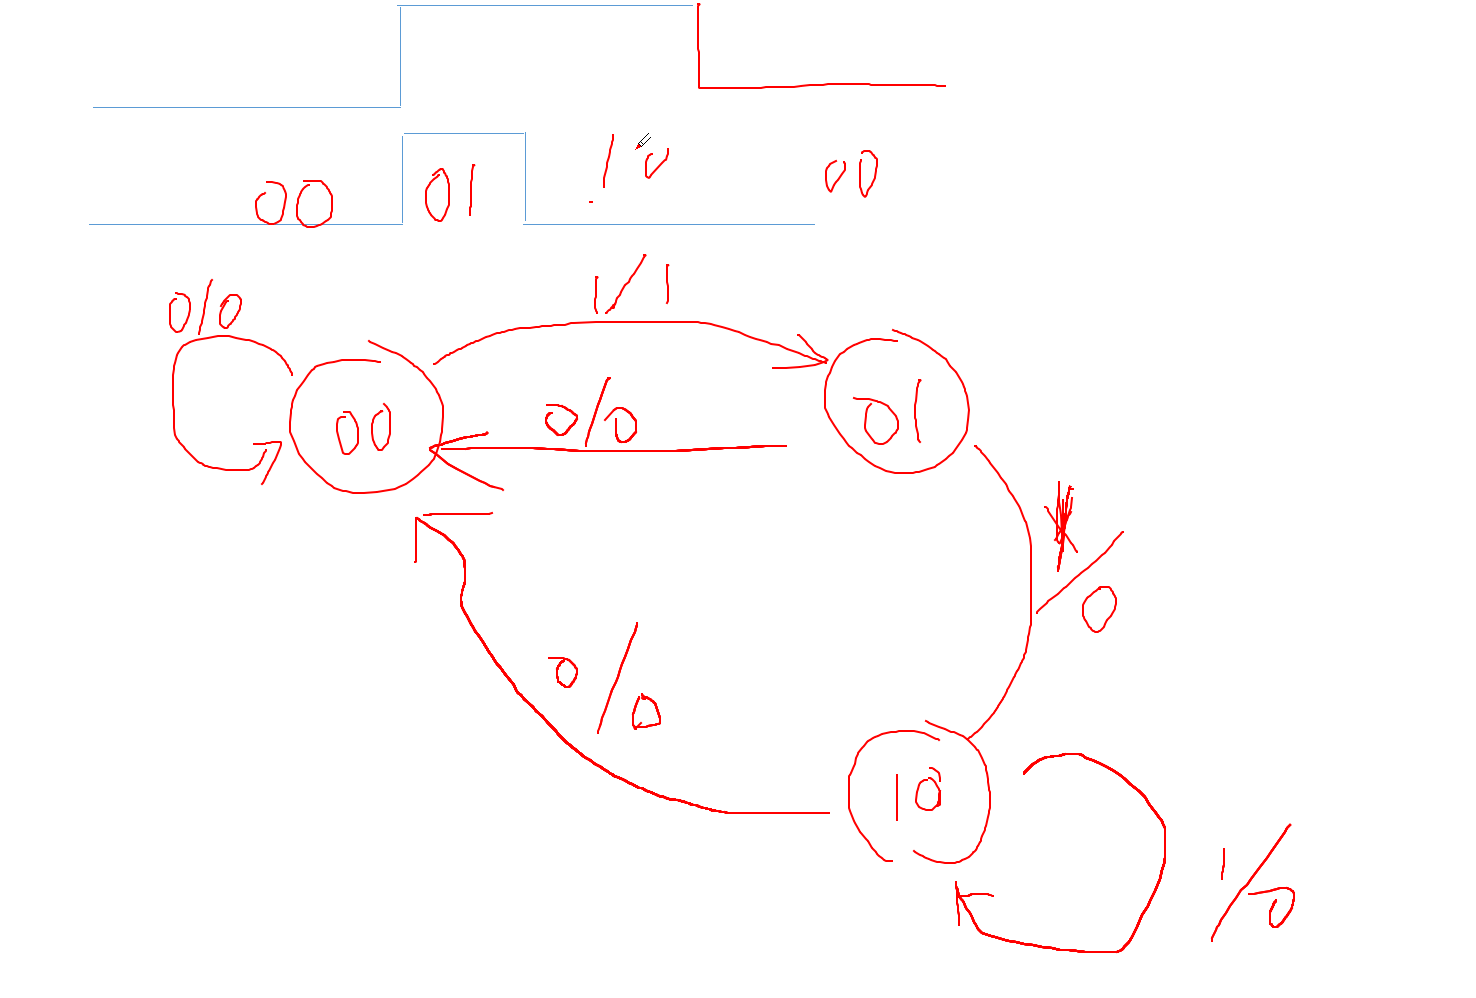 00 01 10 00
1/1
0/0
0/0
00 01
/0
0/0
10
1/0